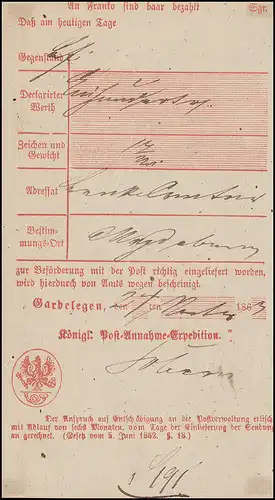 An Franko sind baar bezahlt Sgr.
Daß am heutigen Tage
Gegenstand
Declarirter
Werth
Zeichen und
Gewicht
Adressat Bank Comtoir
Bestim-
mungs-Ort Magdeburg
zur Beförderung mit der Post richtig eingeliefert worden,
wird hierdurch von Amts wegen bescheinigt.
Gardelegen, den ten 186
Königl. Post-Annahme-Expedition.
Der Anspruch auf Entschädigung an die Postverwaltung erlisch
mit Ablauf von sechs Monaten, vom Tage der Einlieferung der Sendun
an gerechnet. (Gesetz vom 5. Juni 1852. §. 18.)
191